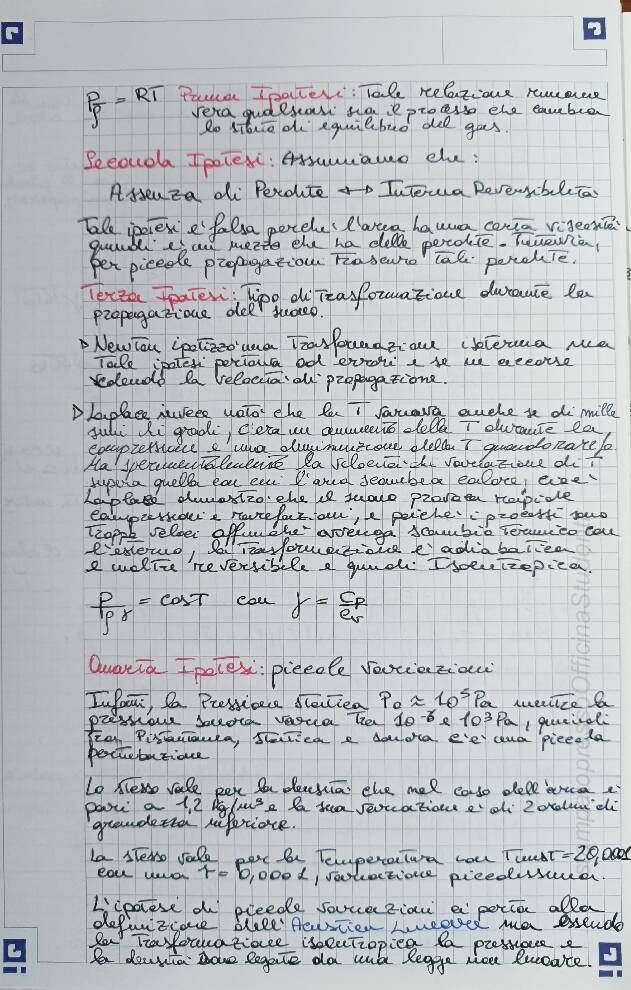 P/ρ = RT Prima Ipotesi: Tale relazione rimane
vera qualsiasi sia il processo che cambia
lo stato di equilibrio del gas.
Seconda Ipotesi: Assumiamo che:
Assenza di Perdite ↔ Interna Reversibilità
Tale ipotesi è falsa perché l'aria ha una certa viscosità
quindi è un mezzo che ha delle perdite. Tuttavia,
per piccole propagazioni trascuro tali perdite.
Terza Ipotesi: Tipo di trasformazione durante la
propagazione del suono.
▷ Newton ipotizzò una trasformazione isoterma ma
tale ipotesi portava ad errori e se ne accorse
vedendo la velocità di propagazione.
▷ Laplace invece notò che la T variava anche se di mille
simi di gradi, c'era un aumento della T durante la
compressione e una diminuzione della T quando raref.
Ma sperimentalmente la velocità di variazione di T
supera quella con cui l'aria scambia calore, cioè
Laplace dimostrò che il suono provoca rapide
compressioni e rarefazioni, e poiché i processi sono
troppo veloci affinché avvenga scambio termico con
l'esterno, la trasformazione è adiabatica
e inoltre reversibile e quindi Isoentropica.
P/ρ^γ = cost con γ = Cp/Cv
Quarta Ipotesi: piccole variazioni
Infatti, la Pressione statica P0 ≈ 10^5 Pa mentre la
pressione sonora varia tra 10^-5 e 10^3 Pa, quindi
tra Pistantanea, statica e sonora c'è una piccola
perturbazione
Lo stesso vale per la densità che nel caso dell'aria è
pari a 1,2 kg/m³ e la sua variazione è di 2 ordini di
grandezza inferiore.
Lo stesso vale per la Temperatura con Tinst = 20,0001
con una T = 0,0001, variazione piccolissima.
L'ipotesi di piccole variazioni ci porta alla
definizione dell'Acustica Lineare ma essendo
la trasformazione isoentropica la pressione e
la densità sono legate da una legge non lineare.